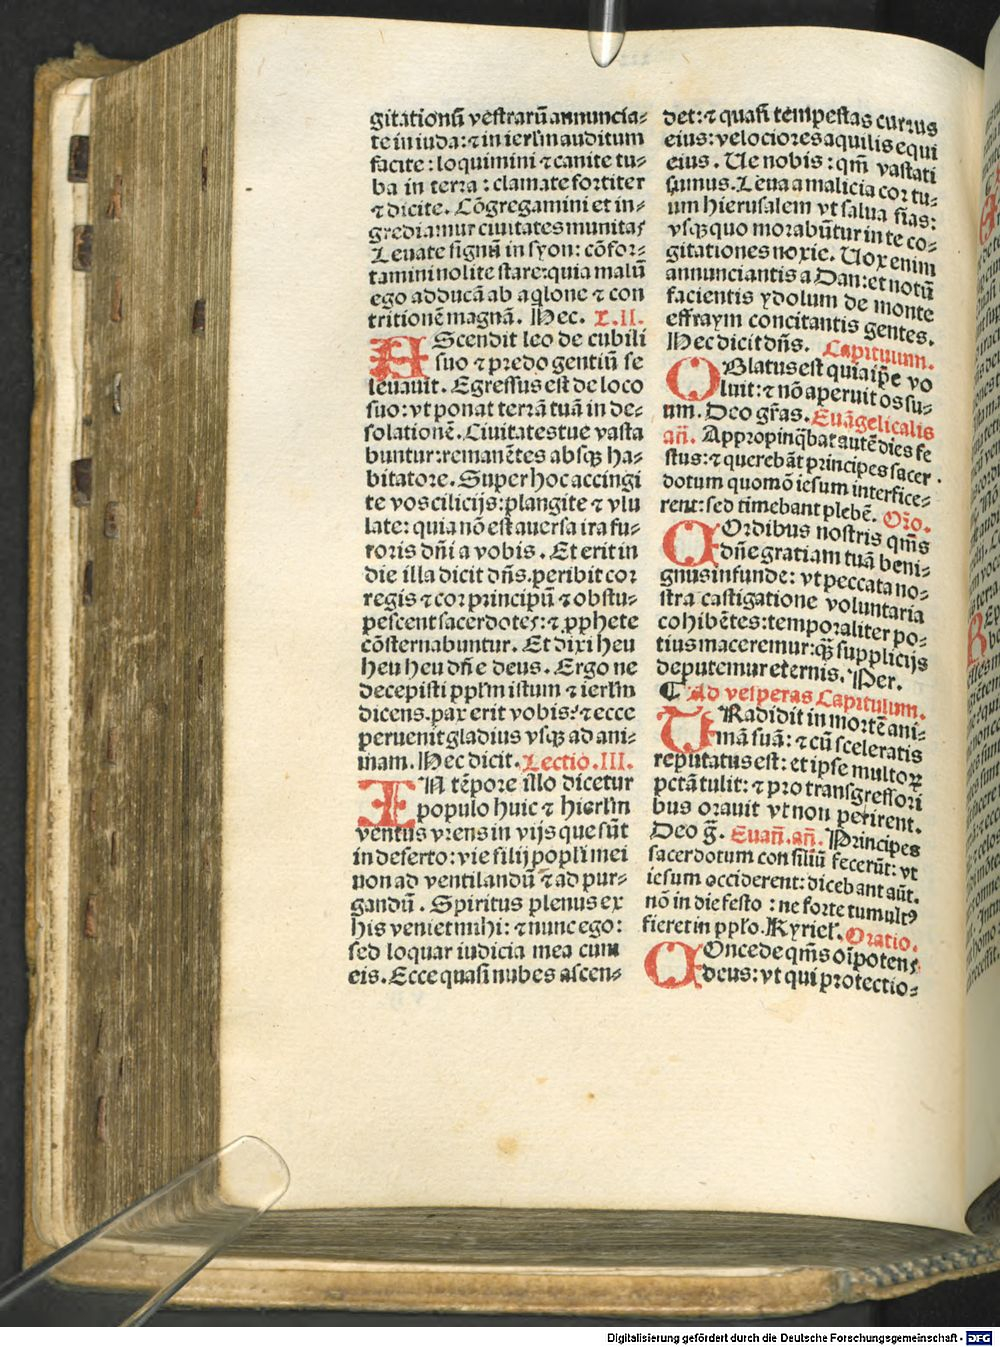 gitationū vestrarū annuncia⸗
te in iuda: ⁊ in ierl̄m auditum
facite: loquimini ⁊ canite tu⸗
ba in terra: clamate fortiter
⁊ dicite. Cōgregamini et in⸗
grediamur ciuitates munitas
Leuate signū in syon: cōfor⸗
tamini nolite stare: quia malū
ego adducā ab aq̄lone ⁊ con
tritionē magnā. Hec. L.II.
AScendit leo de cubili
suo ⁊ predo gentiū se
leuauit. Egressus est de loco
suo: vt ponat terrā tuā in de⸗
solationē. Ciuitates tue vasta
buntur: remanētes absqꝫ ha⸗
bitatore. Super hoc accingi
te vos cilicijs: plangite ⁊ vlu
late: quia nō est auersa ira fu⸗
roris dn̄i a vobis. Et erit in
die illa dicit dn̄s. peribit cor
regis ⁊ cor principū ⁊ obstu⸗
pescent sacerdotes: ⁊ ꝓphete
cōsternabuntur. Et dixi heu
heu heu dn̄e deus. Ergo ne
decepisti ppl̄m istum ⁊ ierl̄m
dicens. pax erit vobis: ⁊ ecce
peruenit gladius vsqꝫ ad ani⸗
mam. Hec dicit. Lectio.III.
IN tēpore illo dicetur
populo huic ⁊ hierl̄m
ventus vrens in vijs que sūt
in deserto: vie filij popl̄i mei
non ad ventilandū ⁊ ad pur⸗
gandū. Spiritus plenus ex
his veniet mihi: ⁊ nunc ego:
sed loquar iudicia mea cum
eis. Ecce quasi nubes ascen⸗
det: ⁊ quasi tempestas currus
eius: velociores aquilis equi
eius. Ue nobis: qm̄ vastati
sumus. Leua a malicia cor tu⸗
um hierusalem vt salua fias:
vsqꝫ quo morabūtur in te co⸗
gitationes noxie. Uox enim
annunciantis a Dan: et notū
facientis ydolum de monte
effraym concitantis gentes.
Hec dicit dn̄s. Capitulum.
OBlatus est quia ip̄e vo
luit: ⁊ nō aperuit os su⸗
um. Deo gr̄as. Euāgelicalis
an̄. Appropinq̄bat autē dies fe
stus: ⁊ querebāt principes sacer
dotum quomō iesum interfice⸗
rent: sed timebant plebē. Or̄o.
COrdibus nostris qm̄s
dn̄e gratiam tuā beni⸗
gnus infunde: vt peccata no⸗
stra castigatione voluntaria
cohibētes: temporaliter po⸗
tius maceremur: qꝫ̄ supplicijs
deputemur eternis. Per.
¶ Ad vesperas Capitulum.
TRadidit in mortē ani⸗
mā suā: ⁊ cū sceleratis
reputatus est: et ipse multoꝝ
pctā tulit: ⁊ pro transgressori
bus orauit vt non perirent.
Deo g̅. Euan̄. an̄. Principes
sacerdotum consiliū fecerūt: vt
iesum occiderent: dicebant aūt.
nō in die festo: ne forte tumultꝰ
fieret in ppl̄o. Kyriel̄. Oratio.
COncede qm̄s oīpotens
deus: vt qui protectio⸗
Digitalisierung gefördert durch die Deutsche Forschungsgemeinschaft - DFG